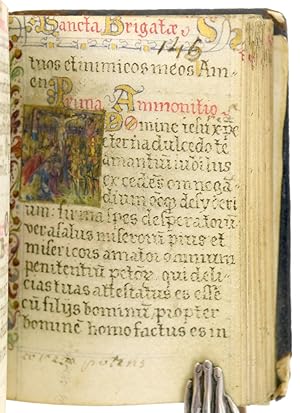 Sancta Brigatæ
146
tuos et inimicos meos Am
en
Prima Ammonitio
Domine iesu xpe
eterna dulcedo te
amantiū iubilus
excedēs omne gā
dium
ium: tu spes desperatorū
vera salus miserorum pius et
misericors amator omnium
penitentiū peccator qui deli
cias tuas attestatus es esse
cū filijs dominum, propter
dominē homo factus es in
potens